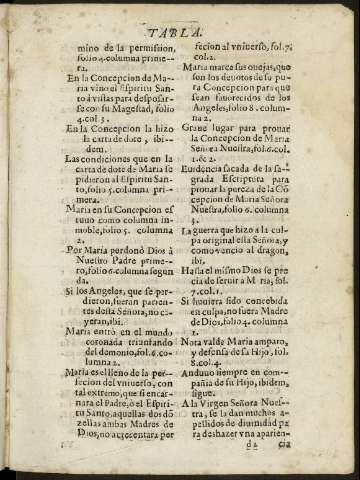 TABLA.
mino de la permission,
folio 4. columna prime-
ra.
En la Concepcion de Ma-
ria vino el Espiritu San-
to à vistas para desposar-
se con su Magestad, folio
4. col. 3.
En la Concepcion la hizo
la carta de dote, ibi-
dem.
Las condiciones que en la
carta de dote de Maria se
pidieron al Espiritu San-
to, folio 5. columna pri-
mera.
Maria en su Concepcion es
tuuo como columna in-
moble, folio 5. columna
2.
Por Maria perdonò Dios à
Nuestro Padre prime-
ro, folio 6. columna segun
da.
Si los Angeles, que se per-
dieron, fueran parien-
tes desta Señora, no ca-
yeran, ibi.
Maria entrò en el mundo
coronada triunfando
del demonio, fol. 6. co-
lumna 2.
Maria es el lleno de la per-
feccion del vniuerso, con
tal extremo, que si encar-
nara el Padre, ò el Espiri-
tu Santo, aquellas dos dõ
zellas ambas Madres de
Dios, no acrecentara per
feccion al vniuerso, fol. 7.
col. 2.
Maria marca sus ouejas, que
son los deuotos de su pu-
ra Concepcion para que
sean fauorecidos de los
Angeles, folio 8. colum-
na 2.
Graue lugar para prouar
la Concepcion de Maria
Señora Nuestra, fol. 6. col.
1. & 2.
Euidencia sacada de la sa-
grada Escriptura para
prouar la pureza de la Cõ
cepcion de Maria Señora
Nuestra, folio 6. columna
3.
La guerra que hizo a la cul-
pa original esta Señora, y
como vencio al dragon,
ibi.
Hasta el mismo Dios se pre
cia de seruir a Maria, fol.
7. col. 1.
Si huuiera sido concebida
en culpa, no fuera Madre
de Dios, folio 4. columna
1.
Nota valde Maria amparo,
y defensa de su Hijo, fol.
8. col. 4.
Anduuo siempre en com-
pañia de su Hijo, ibidem,
sigue.
A la Virgen Señora Nues-
tra, se la dan muchos a-
pellidos de diuinidad pa
ra deshazer vna aparien-
da cia